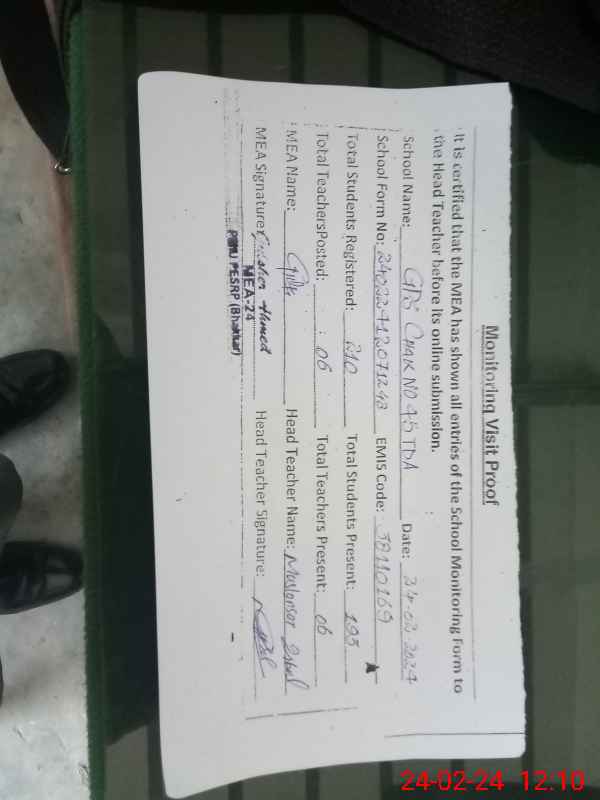 Monitoring Visit Proof
It is certified that the MEA has shown all entries of the School Monitoring Form to
the Head Teacher before its online submission.
School Name: GPS CHAK NO 45 TDA Date: 24-02-2024
School Form No: 24022412071243 EMIS Code: 38110169
Total Students Registered: 210 Total Students Present: 195
Total TeachersPosted: 06 Total Teachers Present: 06
MEA Name: Head Teacher Name:
MEA Signature: Head Teacher Signature:
MEA-24
PMIU PESRP (Bhakkar)
24-02-24 12:10